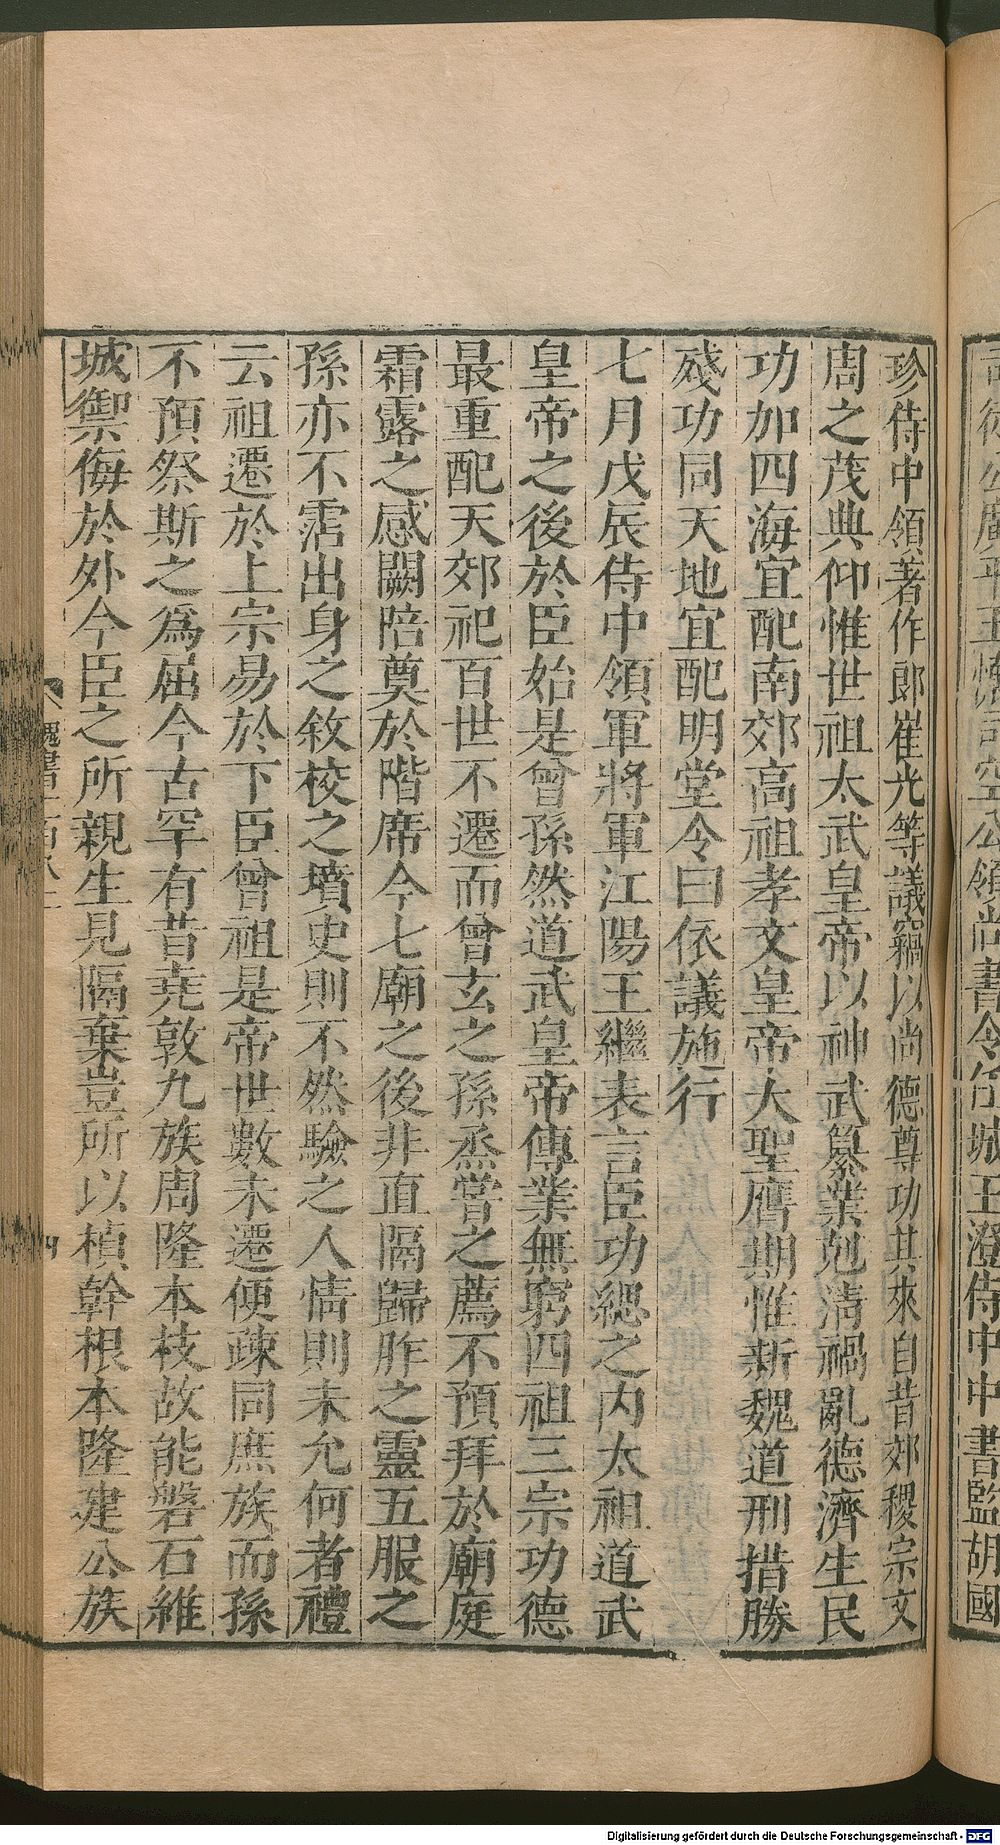 珍侍中領著作郎崔光等議竊以尚德尊功其來自昔郊稷宗文
周之茂典仰惟世祖太武皇帝以神武纂業剋清禍亂德濟生民
功加四海宜配南郊高祖孝文皇帝大聖膺期惟新魏道刑措勝
殘功同天地宜配明堂令曰依議施行
七月戊辰侍中領軍將軍江陽王繼表言臣功緦之內太祖道武
皇帝之後於臣始是曾孫然道武皇帝傳業無窮四祖三宗功德
最重配天郊祀百世不遷而曾玄之孫烝嘗之薦不預拜於廟庭
霜露之感闕陪奠於階席今七廟之後非直隔歸胙之靈五服之
孫亦不霑出身之敘校之墳史則不然驗之人情則未允何者禮
云祖遷於上宗易於下臣曾祖是帝世數未遷便疎同庶族而孫
不預祭斯之爲屈今古罕有昔堯敦九族周隆本枝故能磐石維
城禦侮於外今臣之所親生見隔棄豈所以楨幹根本隆建公族
魏書
令任城王澄侍中中書監胡國
Digitalisierung gefördert durch die Deutsche Forschungsgemeinschaft - DFG